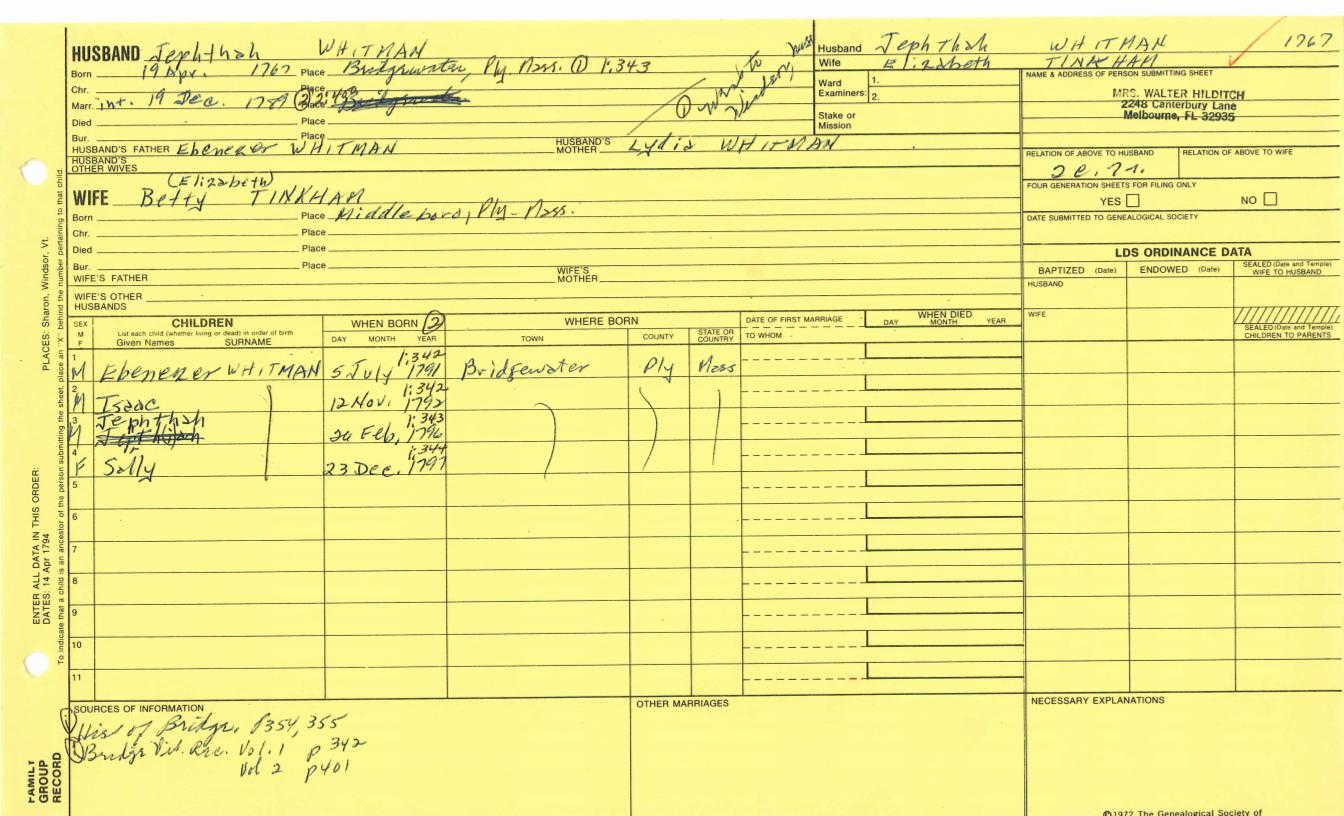 HUSBAND Jephthah WHITMAN
Born 19 Apr. 1767 Place Bridgewater, Ply. Mass. ① 1:343
Chr. Place
Marr. int. 19 Dec. 1789 ② Place
Died Place
Bur. Place
HUSBAND'S FATHER Ebenezer WHITMAN HUSBAND'S MOTHER Lydia WHITMAN
HUSBAND'S OTHER WIVES
① went to Windsor,
(Elizabeth)
WIFE Betty TINKHAM
Born Place Middleboro, Ply-Mass.
Chr. Place
Died Place
Bur. Place
WIFE'S FATHER WIFE'S MOTHER
WIFE'S OTHER HUSBANDS
Husband Jephthah WHITMAN 1767
Wife Elizabeth TINKHAM
Ward Examiners: 1.
2.
Stake or Mission
NAME & ADDRESS OF PERSON SUBMITTING SHEET
MRS. WALTER HILDITCH
2248 Canterbury Lane
Melbourne, FL 32935
RELATION OF ABOVE TO HUSBAND RELATION OF ABOVE TO WIFE
FOUR GENERATION SHEETS FOR FILING ONLY
YES NO
DATE SUBMITTED TO GENEALOGICAL SOCIETY
LDS ORDINANCE DATA
BAPTIZED (Date) ENDOWED (Date) SEALED (Date and Temple) WIFE TO HUSBAND
HUSBAND
WIFE
SEALED (Date and Temple) CHILDREN TO PARENTS
SEX M F CHILDREN WHEN BORN ② WHERE BORN DATE OF FIRST MARRIAGE WHEN DIED
List each child (whether living or dead) in order of birth
Given Names SURNAME DAY MONTH YEAR TOWN COUNTY STATE OR COUNTRY TO WHOM DAY MONTH YEAR
1 1:342
M Ebenezer WHITMAN 5 July 1791 Bridgewater Ply Mass
2 1:342
M Isaac 12 Nov. 1792
3 Jephthah 1:343
M 20 Feb, 1796
4 1:344
F Sally 23 Dec. 1797
5
6
7
8
9
10
11
SOURCES OF INFORMATION
His of Bridge, P354, 355
Bridge Vit. Rec. Vol. 1 p 342
Vol 2 p401
OTHER MARRIAGES
NECESSARY EXPLANATIONS
©1972 The Genealogical Society of
PLACES: Sharon, Windsor, Vt.
ENTER ALL DATA IN THIS ORDER:
DATES: 14 Apr 1794
To indicate that a child is an ancestor of the person submitting the sheet, place an "X" behind the number pertaining to that child.
FAMILY GROUP RECORD